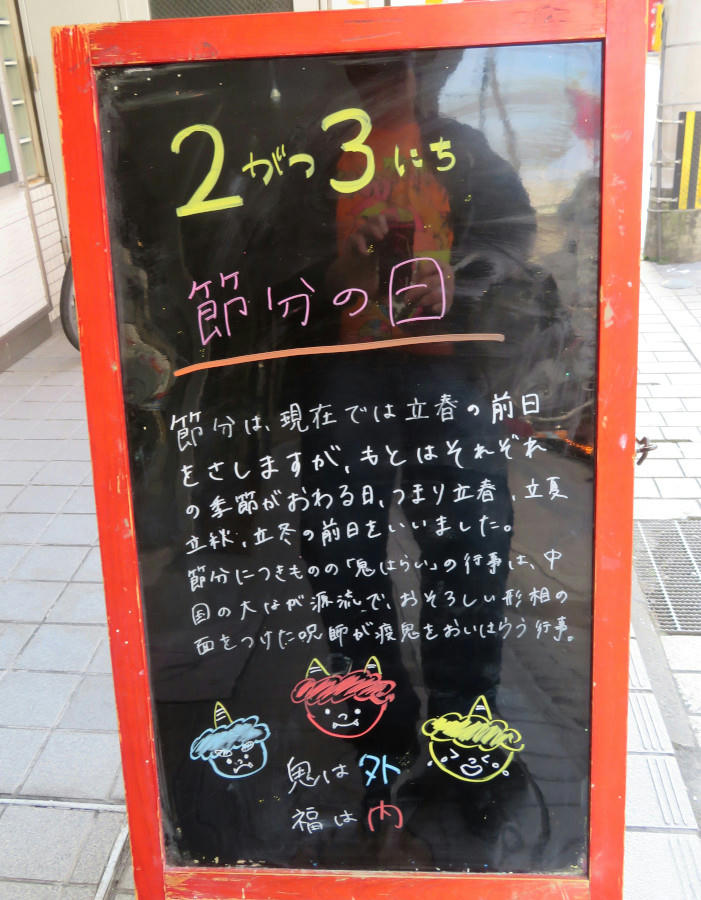 2がつ3にち
節分の日
節分は、現在では立春の前日
をさしますが、もとはそれぞれ
の季節がおわる日、つまり立春、立夏
立秋、立冬の前日をいいました。
節分につきものの「鬼はらい」の行事は、中
国の大なが源流で、おそろしい形相の
面をつけた呪師が疫鬼をおいはらう行事。
鬼は外
福は内